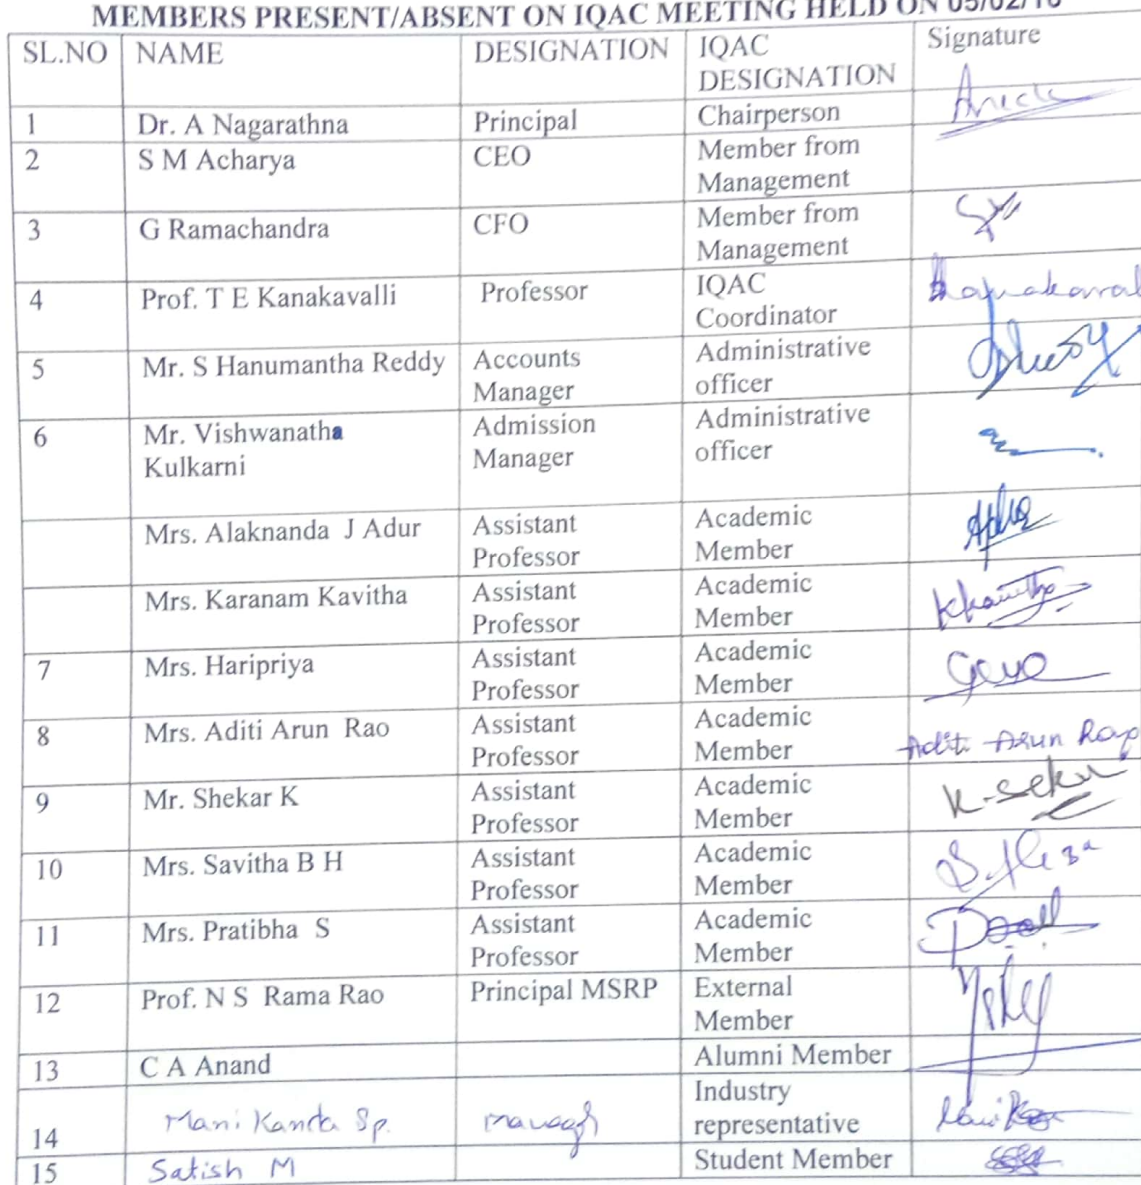 MEMBERS PRESENT/ABSENT ON IQAC MEETING HELD ON 05/02/16
SL.NO NAME DESIGNATION IQAC DESIGNATION Signature
1 Dr. A Nagarathna Principal Chairperson
2 S M Acharya CEO Member from Management
3 G Ramachandra CFO Member from Management
4 Prof. T E Kanakavalli Professor IQAC Coordinator
5 Mr. S Hanumantha Reddy Accounts Manager Administrative officer
6 Mr. Vishwanatha Kulkarni Admission Manager Administrative officer
Mrs. Alaknanda J Adur Assistant Professor Academic Member
Mrs. Karanam Kavitha Assistant Professor Academic Member
7 Mrs. Haripriya Assistant Professor Academic Member
8 Mrs. Aditi Arun Rao Assistant Professor Academic Member Aditi Arun Rao
9 Mr. Shekar K Assistant Professor Academic Member
10 Mrs. Savitha B H Assistant Professor Academic Member
11 Mrs. Pratibha S Assistant Professor Academic Member
12 Prof. N S Rama Rao Principal MSRP External Member
13 C A Anand Alumni Member
14 Mani Kanta Sp. Industry representative
15 Satish M Student Member